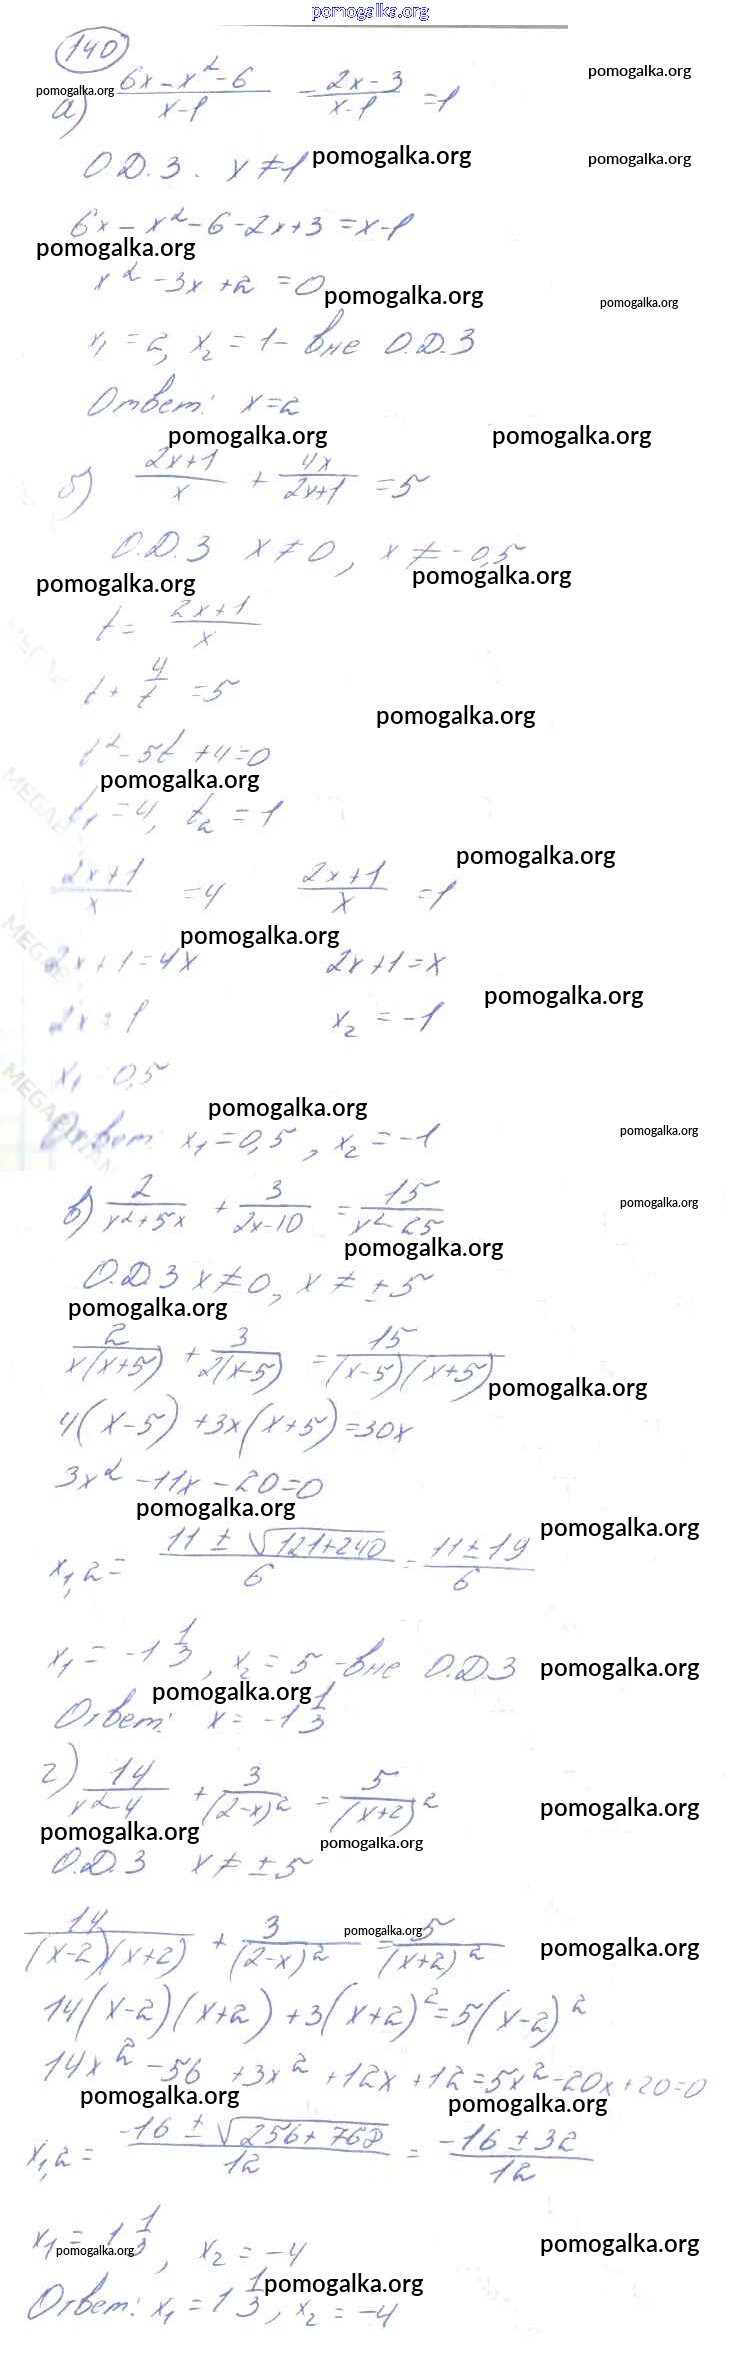 pomogalka.org
140
а) (6x-x²-6)/(x-1) - (2x-3)/(x-1) =1
pomogalka.org
pomogalka.org
О.Д.З. x≠1
pomogalka.org
pomogalka.org
6x-x²-6-2x+3=x-1
pomogalka.org
x²-3x+2=0
pomogalka.org
pomogalka.org
x₁=2, x₂=1- вне О.Д.З
Ответ: x=2
pomogalka.org
pomogalka.org
б) (2x+1)/x + 4x/(2x+1) =5
О.Д.З x≠0, x≠-0,5
pomogalka.org
pomogalka.org
t= (2x+1)/x
t+ 4/t =5
pomogalka.org
t²-5t+4=0
pomogalka.org
t₁=4, t₂=1
pomogalka.org
(2x+1)/x =4 (2x+1)/x =1
pomogalka.org
2x+1=4x 2x+1=x
pomogalka.org
2x=1 x₂=-1
x₁ 0,5
pomogalka.org
Ответ: x₁=0,5, x₂=-1
pomogalka.org
в) 2/(x²+5x) + 3/(2x-10) = 15/(x²-25)
pomogalka.org
pomogalka.org
О.Д.З x≠0, x≠±5
pomogalka.org
2/(x(x+5)) + 3/(2(x-5)) = 15/((x-5)(x+5))
pomogalka.org
4(x-5)+3x(x+5)=30x
3x²-11x-20=0
pomogalka.org
pomogalka.org
x₁,₂= (11±√(121+240))/6 = (11±19)/6
x₁=-1 1/3, x₂=5 -вне О.Д.З
pomogalka.org
pomogalka.org
Ответ: x=-1 1/3
г) 14/(x²-4) + 3/(2-x)² = 5/(x+2)²
pomogalka.org
pomogalka.org
pomogalka.org
О.Д.З x≠±5
14/((x-2)(x+2)) + 3/(2-x)² = 5/(x+2)²
pomogalka.org
pomogalka.org
14(x-2)(x+2)+3(x+2)²=5(x-2)²
14x²-56+3x²+12x+12=5x²-20x+20=0
pomogalka.org
pomogalka.org
x₁,₂= (-16±√(256+768))/12 = (-16±32)/12
x₁=1 1/3, x₂=-4
pomogalka.org
pomogalka.org
Ответ: x₁=1 1/3, x₂=-4
pomogalka.org